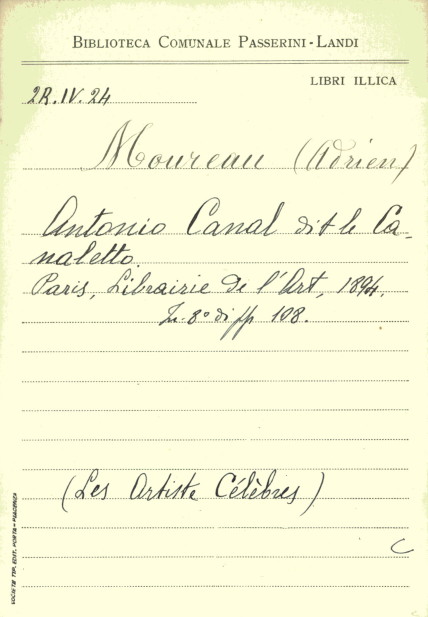 BIBLIOTECA COMUNALE PASSERINI-LANDI
LIBRI ILLICA
2R.IV.24
Moureau (Adrien)
Antonio Canal dit le Ca-
naletto.
Paris, Librairie de l'Art, 1894.
In-8° di pp 108.
(Les Artiste Célèbres)
C
SOCIETÀ TIP. EDIT. PORTA - PIACENZA